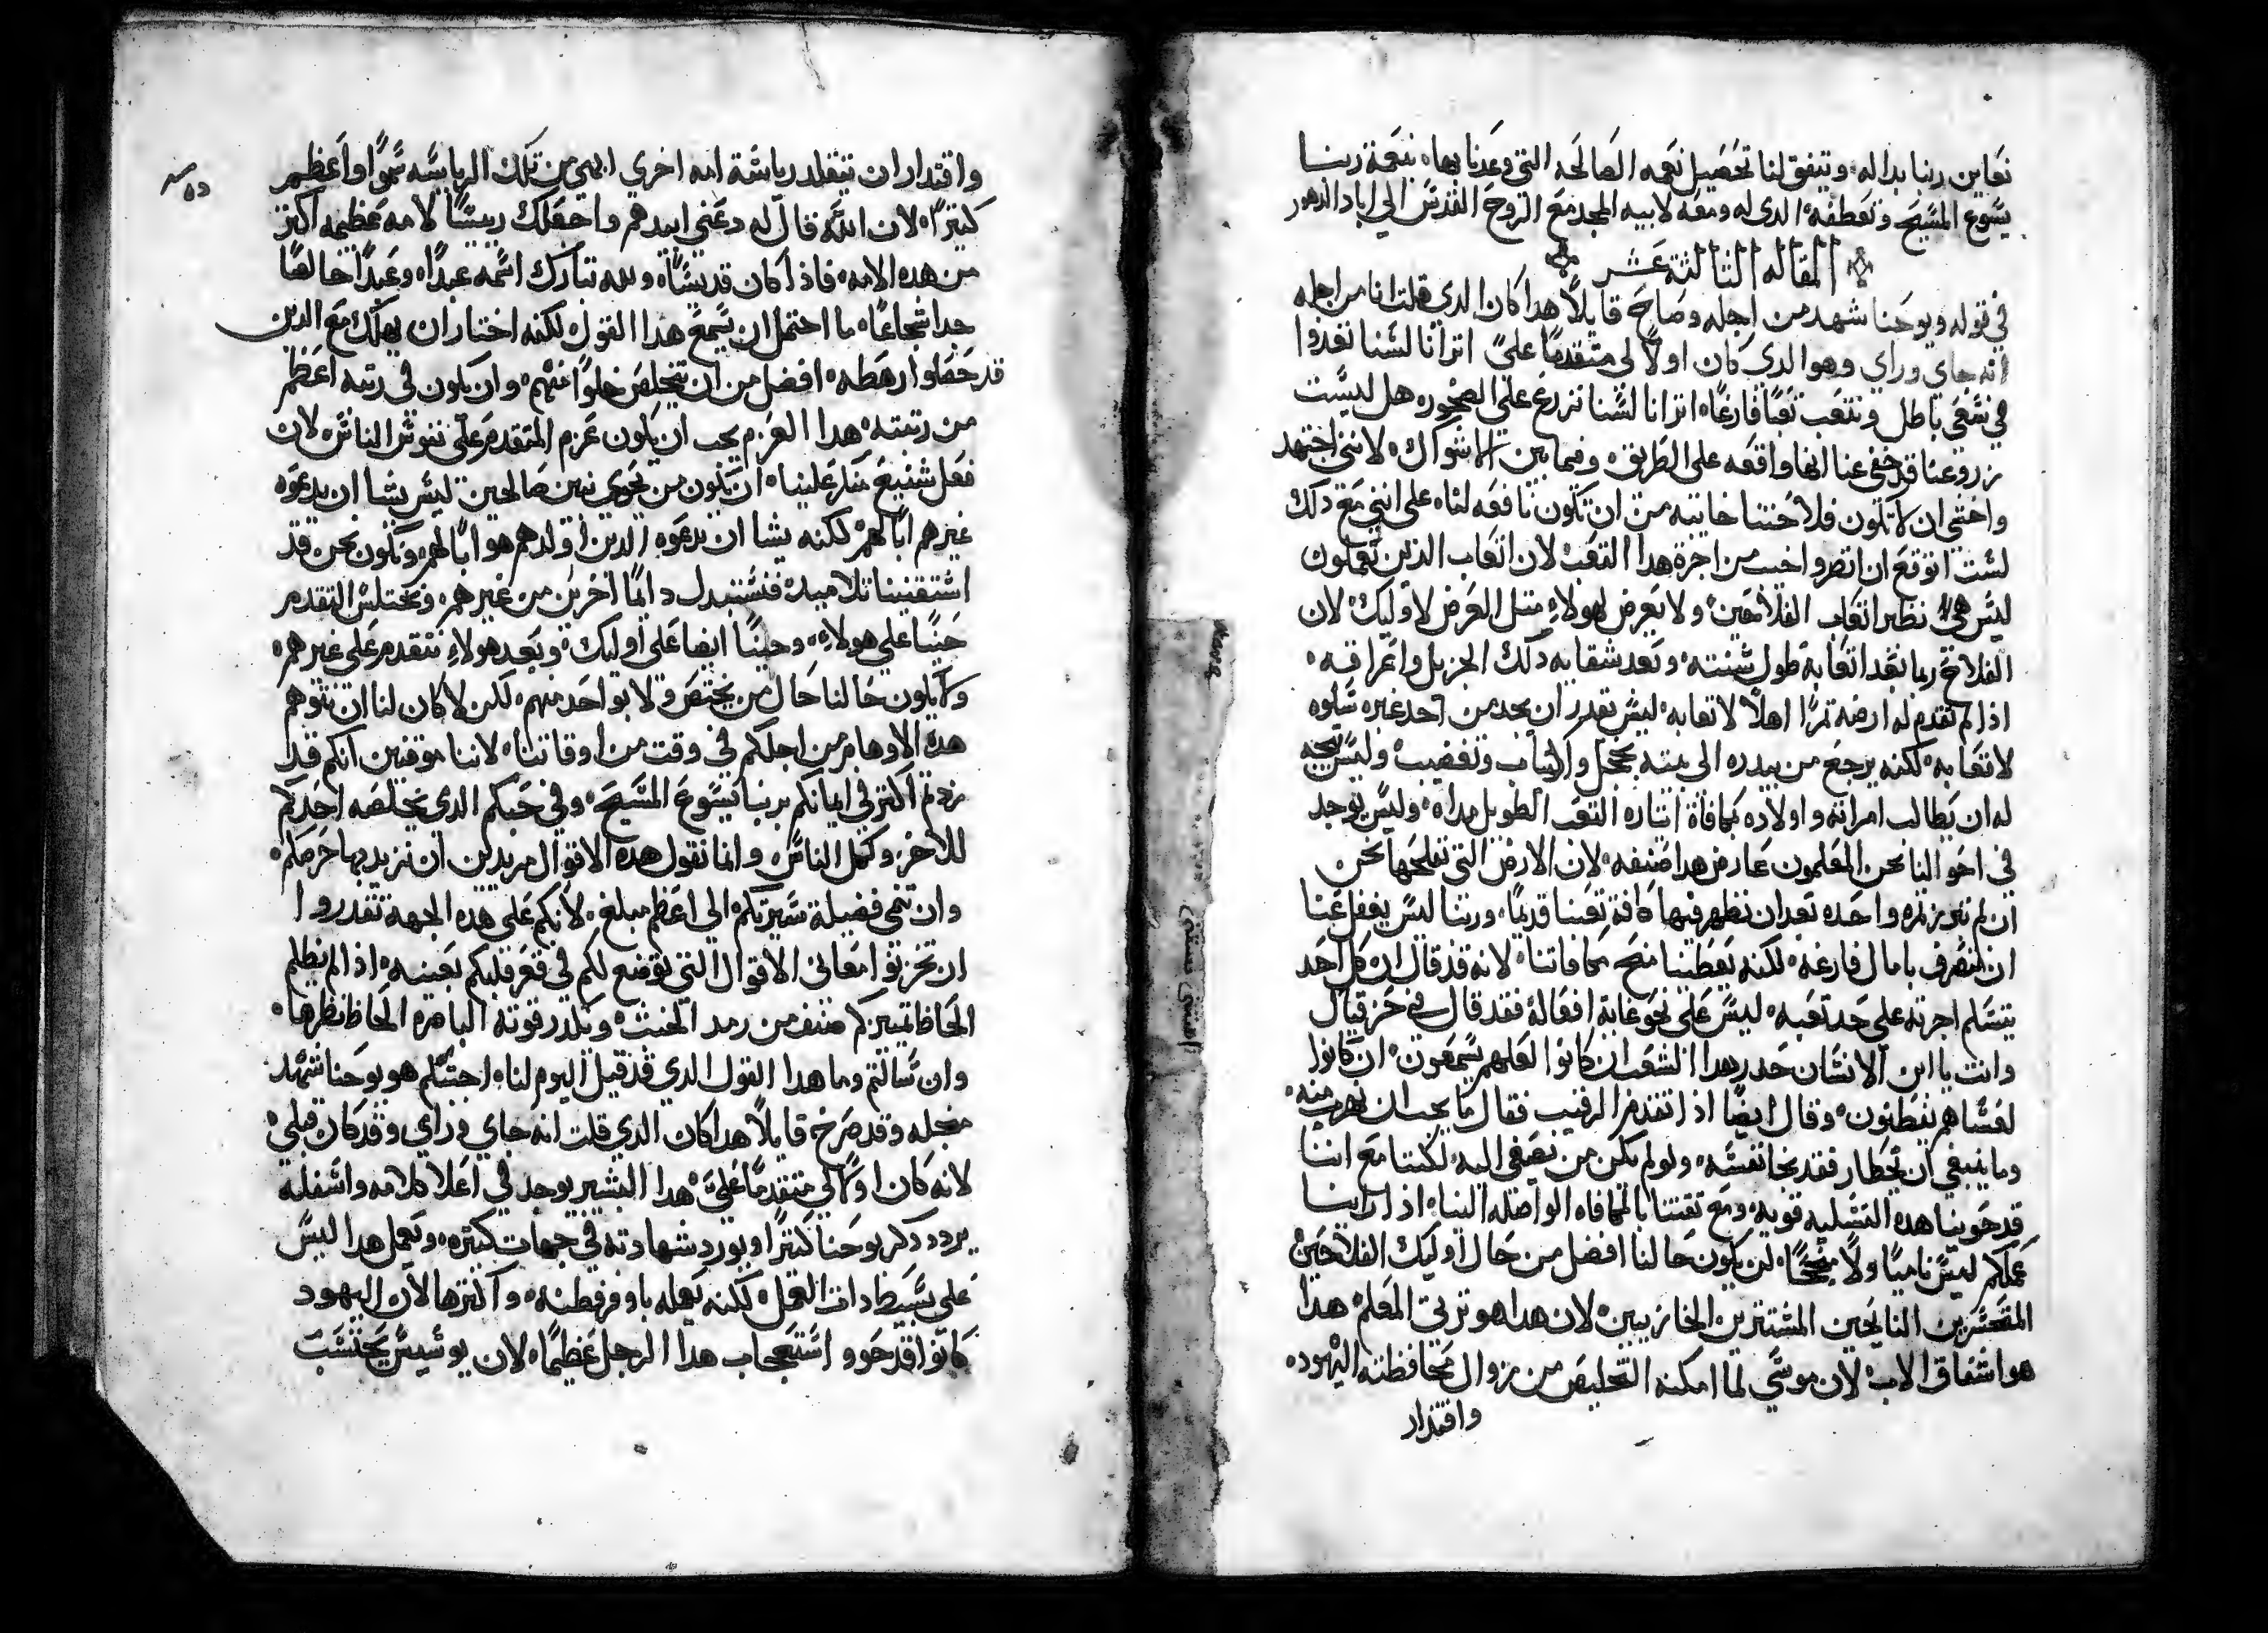 نعاين ربنا بداله، وتيفق لنا تحصيل نعمه الصالحه التي وعدنا بها، بنعمة ربنا
يسوع المسيح وتعطفه، الدي له ومعه لابيه المجد مع الروح القدس الي اباد الدهور
المقاله الثالثة عشر
في قوله ويوحنا شهد من اجله وصاح قايلاً هدا كان الدي قلت انا من اجله
انه جاي وراي وهو الدي كان اولاً لي متقدمًا عليَّ اترانا لسنا نعدوا
في سعي باطل ونتعب تعبًا فارغًا، اترانا لسنا نزرع علي الصخور، هل ليست
زروعنا قد خفي عنا انها واقعه علي الطريق، وفيما بين الاشواك، لانني اجتهد
واخشي ان لا تكون فلاحتنا خايبه من ان تكون نافعه لنا، علي انني مع دلك
لست اتوقع ان اتضرو اخيب من اجرة هدا التعب، لان اتعاب الدين تعملون
ليس هي نظير اتعاب الفلاحين، ولا يعرض لهولاءِ مثل العرض لاوليك، لان
الفلاح ربما بعد اتعابه طول سنته، وبعد شقايه دلك الجزيل واعراقه،
ادا لم تقدم له ارضه ثمرًا اهلاً لاتعابه، ليس يقدر ان يجد من احد غيره سلوه
لاتعابه، لكنه يرجع من بيدره الي بيته بخجل واكتياب وتغضيب، وليس يتجه
له ان يطالب امراته واولاده بمكافاة اتاره التعب الطويل مداه، وليس يوجد
في احوالنا نحن المعلمون عارض هدا صنفه، لان الارض التي نفلحها نحن
ان لم تبرز ثمره واحده بعد ان تظهر فيها كافة تعبنا قديمًا، وربنا ليس يغفل عنا
ان ننصرف بامال فارغه، لكنه يعطينا منح مكافاتنا، لانه قد قال ان كل احد
يتسلم اجرته علي حد تعبه، ليس علي نحو غاية افعاله فقد قال في حزقيال
وانت يا ابن الانسان حدر هدا الشعب ان كانوا لعلهم يسمعون، ان كانوا
لعساهم يفطنون، وقال ايضًا ادا تقدم الرقيب فقال ما يجب ان يهرب منه،
وما ينبغي ان يحطار فقد نجا نفسه، ولو لم يكن من يصغي اليه، لكننا مع اننا
قد حوينا هده التسليه قويه، ومع تقتنا بالمكافاه الواصله الينا، ادا راينا
عملكم ليس ناميًا ولا منجحًا، لن يكون حالنا افضل من حال اوليك الفلاحين
المتحسرين النايحين المستترين الخازيين، لان هدا هو ترتي المعلم، هدا
هو اشفاق الاب، لان موسي لما امكنه التخليص من زوال محافظته اليهود،
واقتدار
واقتدار ان يتقلد رياسة امه اخري ابهي من تلك الرياسه سموًا واعظم
كثيرًا، لان الله قال له دعني ابيدهم واجعلك رييسًا لامه عظيمه اكتر
من هده الامه، فاذا كان قديسًا، ولله تبارك اسمه عبدًا، وعبدًا خالصًا
جدا شجاعًا، ما احتمل ان يسمع هدا القول، لكنه اختار ان يهلك مع الدين
قد حصلوا رهطه، افضل من ان يتخلص خلوًا منهم، وان يكون في رتبه اعظم
من رتبته، هدا العزم يجب ان يكون عزم المتقدم علي نفوس الناس، لان
فعل شنيع منكر علينا، ان يكون من يحوي بنين صالحين ليس يشا ان يدعوه
غيرهم ابًا لهم، لكنه يشا ان يدعوه الدين اولدهم هو ابًا لهم، ونكون نحن قد
استقنينا تلاميد، فنستبدل دايمًا اخرين من غيرهم، ونختلس التقدم
حينًا علي هولاءِ، وحينًا ايضا علي اوليك، وبعد هولاءِ نتقدم علي غيرهم،
ولا يكون حالنا حال من يختص ولا بواحد منهم، لكن لا كان لنا ان نتوهم
هده الاوهام من اجلكم في وقت من اوقاتنا، لاننا موقنين انكم قد
زدتم اكتر في ايمانكم بربنا يسوع المسيح، وفي حبكم الدي يخلصه احدكم
للاخر، ولكل الناس، وانما نقول هده الاقوال مريدين ان نزيد بها حرصكم،
وان تنمي فضيلة سيرتكم الي اعظم مبلغ، لانكم علي هده الجهه تقدروا
ان تحزروا معاني الاقوال التي توضع لكم في قعر قلبكم بعينه، ادا لم يظلم
الحاظ تميزكم صنف من رمد الخبث، ويكدر قوته الباهره الحاظ نظرها،
وان سالتم وما هدا القول الدي قد قيل اليوم لنا، اجبتكم هو يوحنا شهد
من اجله وقد صرخ قايلاً هدا كان الدي قلت انه جاي وراي وقد كان قبلي،
لانه كان اولاً لي متقدمًا عليَّ، هدا البشير يوجد في اعلا كلامه واسفله
يردد دكر يوحنا كتيرًا ويورد شهادته في جهات كتيره، ويعمل هدا ليس
علي بسيط دات العمل، لكنه يعمله باوفر فطنه، واكترها لان اليهود
كانوا قد حووا استعجاب هدا الرجل عظيمًا، لان يوسيبس يحتسب